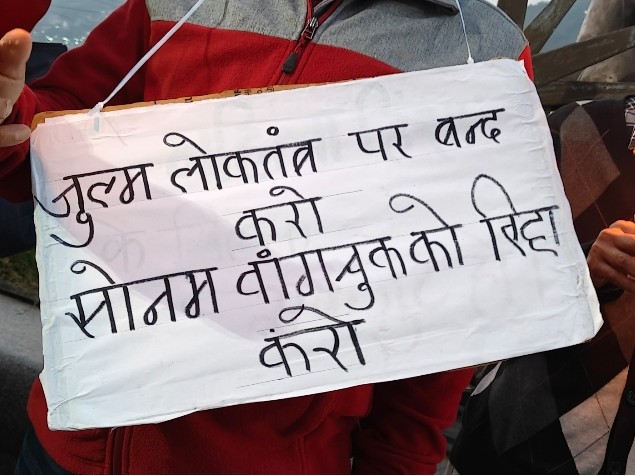 जुल्म लोकतंत्र पर बन्द
करो
सोनम वांगचुक को रिहा
करो